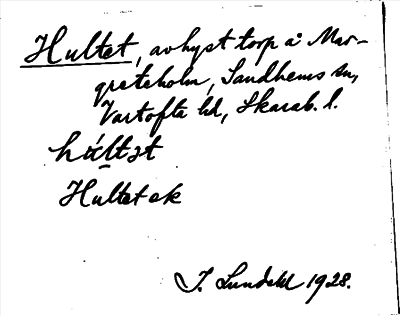 Hultet, avhyst torp å Mar-
greteholm, Sandhems sn,
Vartofta hd, Skarab. l.
hùltət
Hultet ek
I. Lundahl 1928.